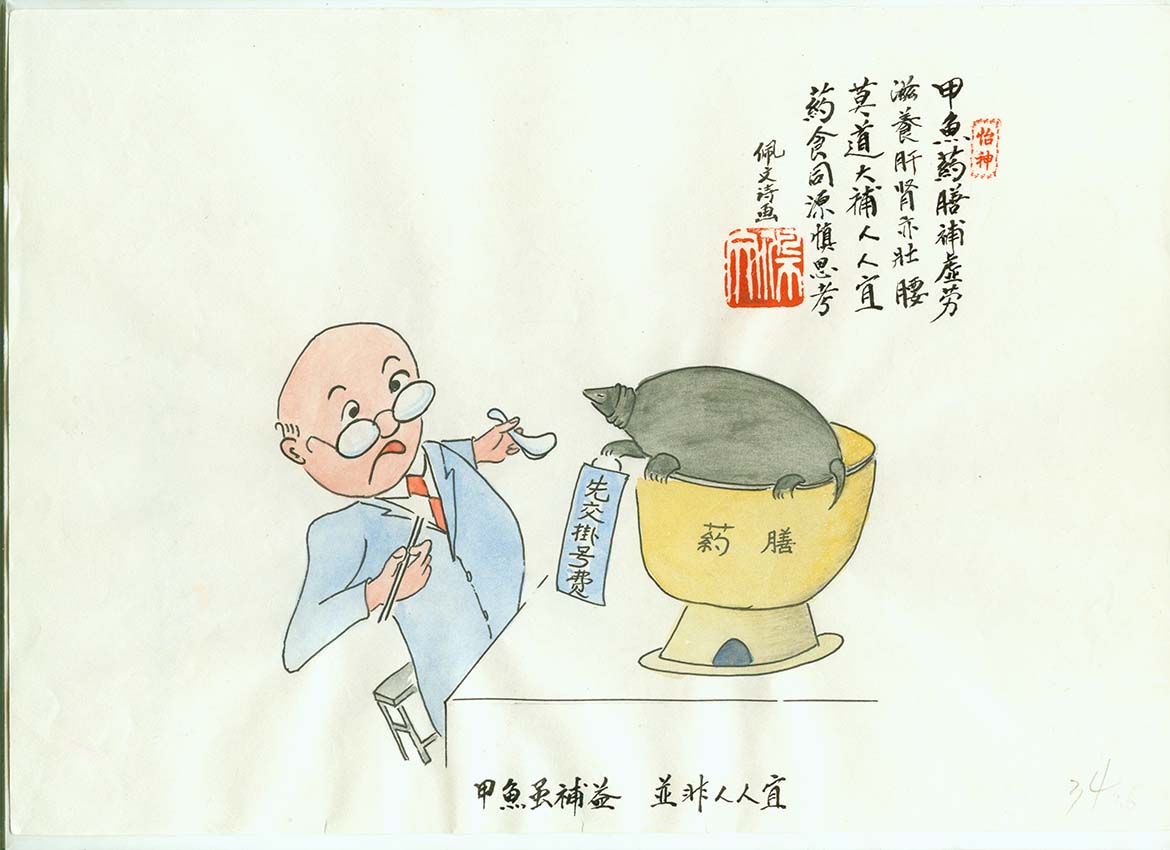 怡神
甲魚药膳補虛劳
滋養肝肾亦壮腰
莫道大補人人宜
药食同源慎思考
佩文诗画
先交掛号费
药膳
甲魚虽補益 並非人人宜
34